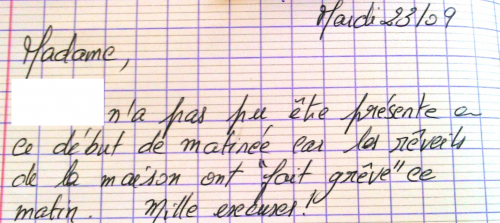 Mardi 23/09
Madame,
n'a pas pu être présente en
ce début de matinée car les réveils
de la maison ont "fait grève" ce
matin. Mille excuses!